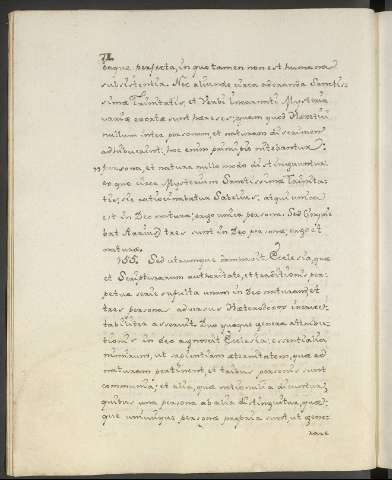 72.
deque perfecta, in quo tamen non est humana
subsistentia. Nec aliunde circa adoranda Sanctis-
simæ Trinitatis, et Verbi Incarnati Mysteria
variæ exortæ sunt hæreses; quam quod Hæretici
nullum inter personam, et naturam discrimen
adhibuerint; hoc enim principio nitebantur:
" Persona, et natura nullo modo distinguuntur.
ex quo circa Mysterium Sanctissimæ Trinita-
tis, sic ratiocinabatur Sabelius: atqui unica
est in Deo natura; ergo unica persona. Sed
bat Arrius; tres sunt in Deo personæ; ergo et
naturæ.
155. Sed utrumque damnavit Ecclesia, quæ
et Scripturarum authoritate, et traditionis per-
petua serie suffulta unam in Deo naturam, et
tres personas adversus Hæterodoxos
asseruit. Duo quoque genera attribu-
tionis in Deo agnoscit Ecclesia; essentialia
nimirum, ut sapientiam æternitatem, quæ ad
naturam pertinent, et tribus personis sunt
communia; et alia, quæ rationalia dicuntur,
quibus una persona ab alia distinguitur, quæ-
que uniuscujusque personæ propria sunt, ut gene-
rare